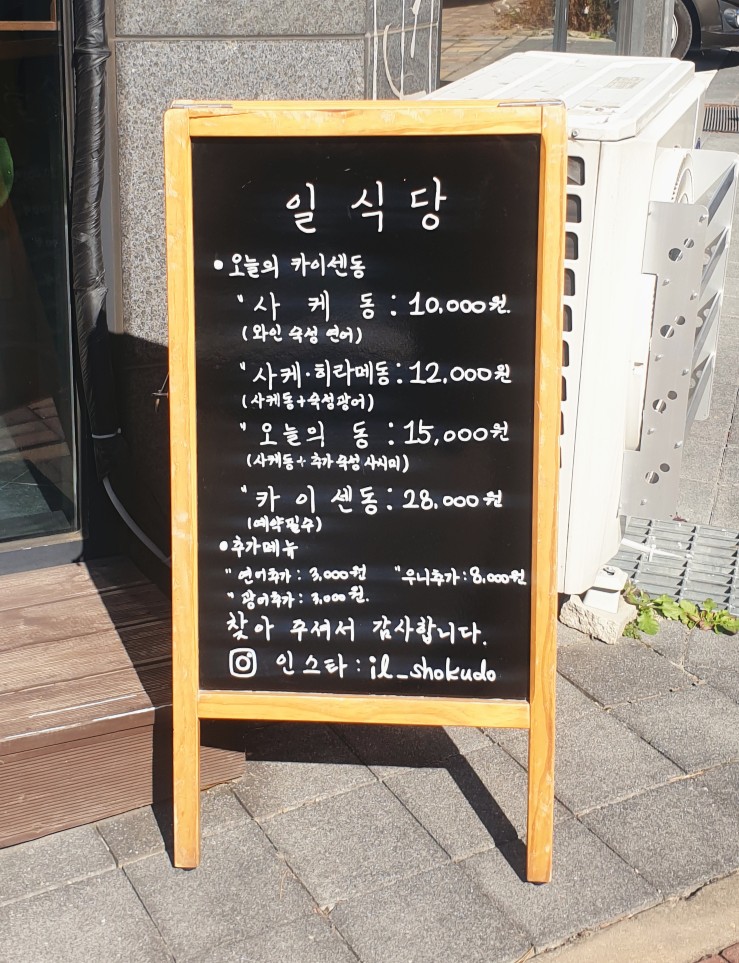 일 식 당
• 오늘의 카이센동
" 사 케 동 : 10,000원.
(와인 숙성 연어)
" 사케·히라메동 : 12,000원
(사케동+숙성광어)
" 오늘의 동 : 15,000원
(사케동+추가 숙성 사시미)
" 카 이 센동 : 28,000원
(예약필수)
• 추가메뉴
" 연어추가 : 3,000원 " 우니추가 : 8,000원
" 광어추가 : 3,000원.
찾아 주셔서 감사합니다.
인스타 : il_shokudo